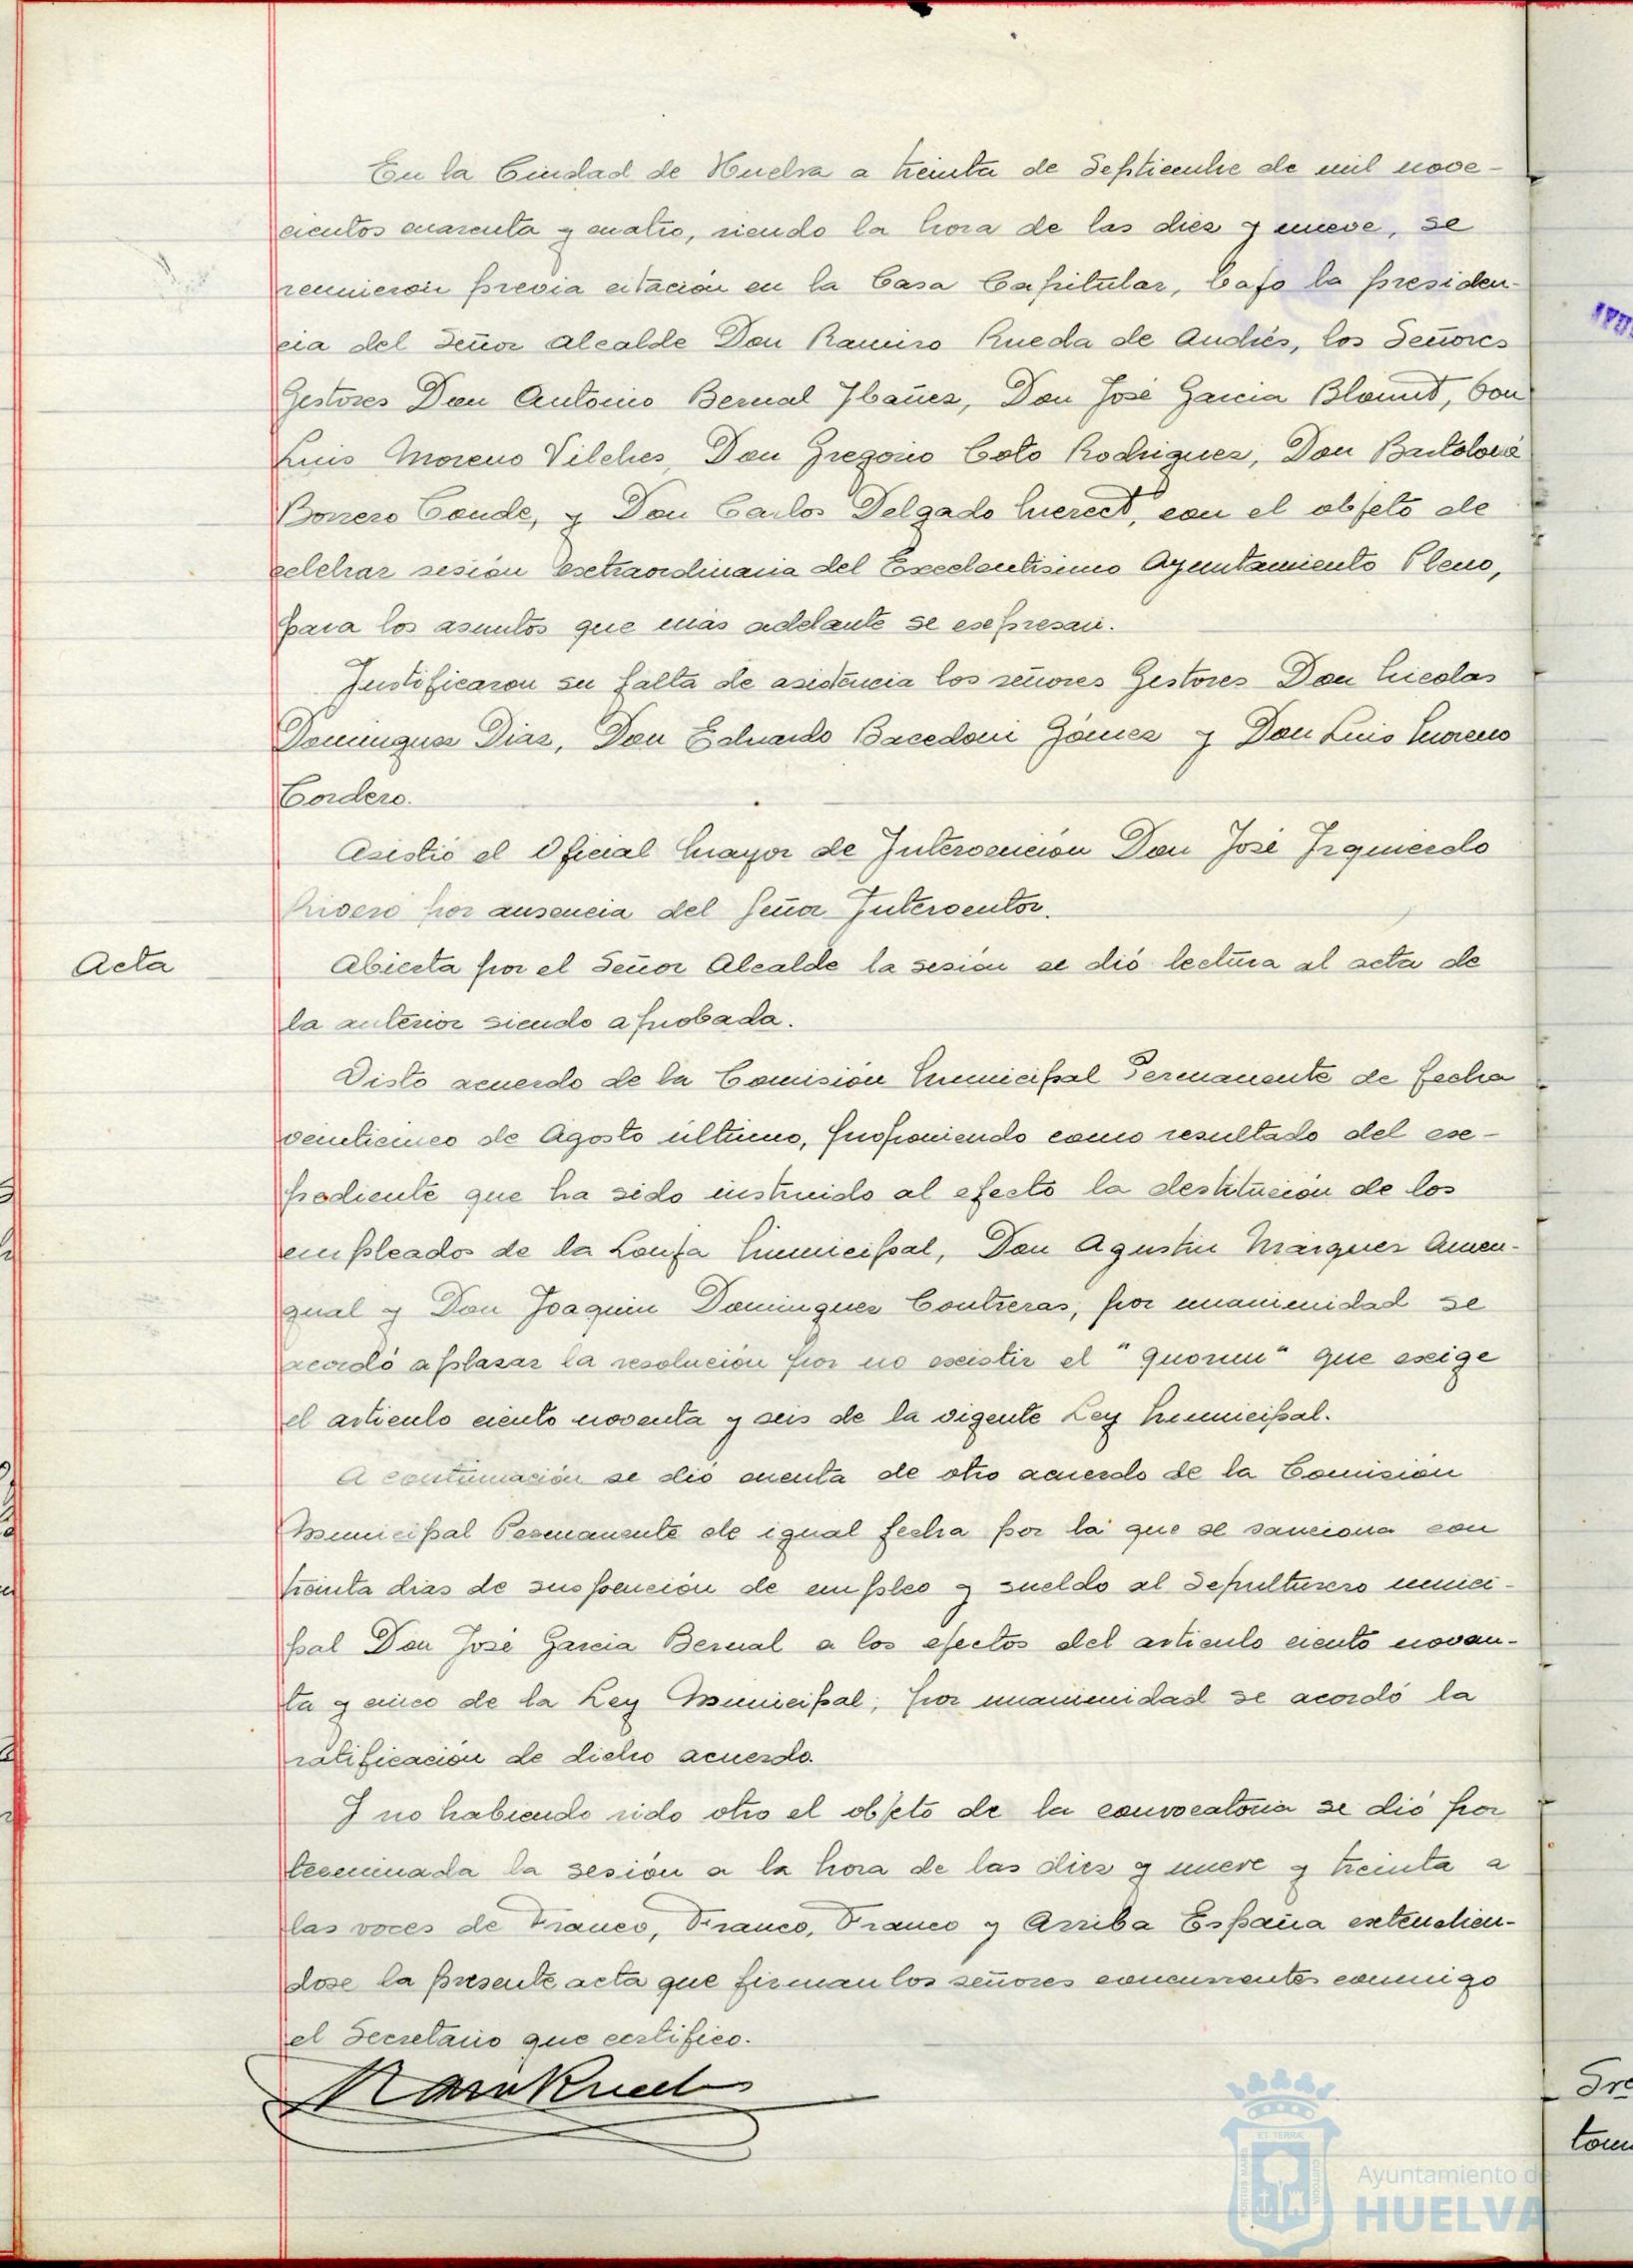 En la Ciudad de Huelva a treinta de Septiembre de mil nove-
cientos cuarenta y cuatro, siendo la hora de las diez y nueve, se
reunieron previa citación en la Casa Capitular, bajo la presiden-
cia del Señor Alcalde Don Ramiro Rueda de Andrés, los Señores
Gestores Don Antonio Bernal Ybañez, Don José Garcia Blount, Don
Luis Moreno Vilches, Don Gregorio Coto Rodriguez, Don Bartolomé
Borrero Conde, y Don Carlos Delgado con el objeto de
celebrar sesión extraordinaria del Excelentisimo Ayuntamiento Pleno,
para los asuntos que más adelante se expresan.
Justificaron su falta de asistencia los señores Gestores Don Nicolas
Dominguez Diaz, Don Eduardo Bacedoni Gómez y Don Luis Moreno
Cordero.
Asistió el Oficial Mayor de Intervención Don José Izquierdo
Rivero por ausencia del Señor Interventor.
Acta
Abierta por el Señor Alcalde la sesión se dió lectura al acta de
la anterior siendo aprobada.
Visto acuerdo de la Comisión Municipal Permanente de fecha
veinticinco de Agosto último, proponiendo como resultado del ex-
pediente que ha sido instruido al efecto la destitución de los
empleados de la Lonja Municipal, Don Agustin Márquez Amen-
gual y Don Joaquin Dominguez Contreras, por unanimidad se
acordó aplazar la resolución por no existir el "quorum" que exige
el articulo ciento noventa y seis de la vigente Ley Municipal.
A continuación se dió cuenta de otro acuerdo de la Comisión
Municipal Permanente de igual fecha por la que se sanciona con
treinta dias de suspención de empleo y sueldo al Sepulturero munici-
pal Don José Garcia Bernal a los efectos del articulo ciento noven-
ta y cinco de la Ley Municipal; por unanimidad se acordó la
ratificación de dicho acuerdo.
Y no habiendo sido otro el objeto de la convocatoria se dió por
terminada la sesión a la hora de las diez y nueve y treinta a
las voces de Franco, Franco, Franco y Arriba España extendien-
dose la presente acta que firman los señores concurrentes conmigo
el Secretario que certifico.
Ayuntamiento de
HUELVA